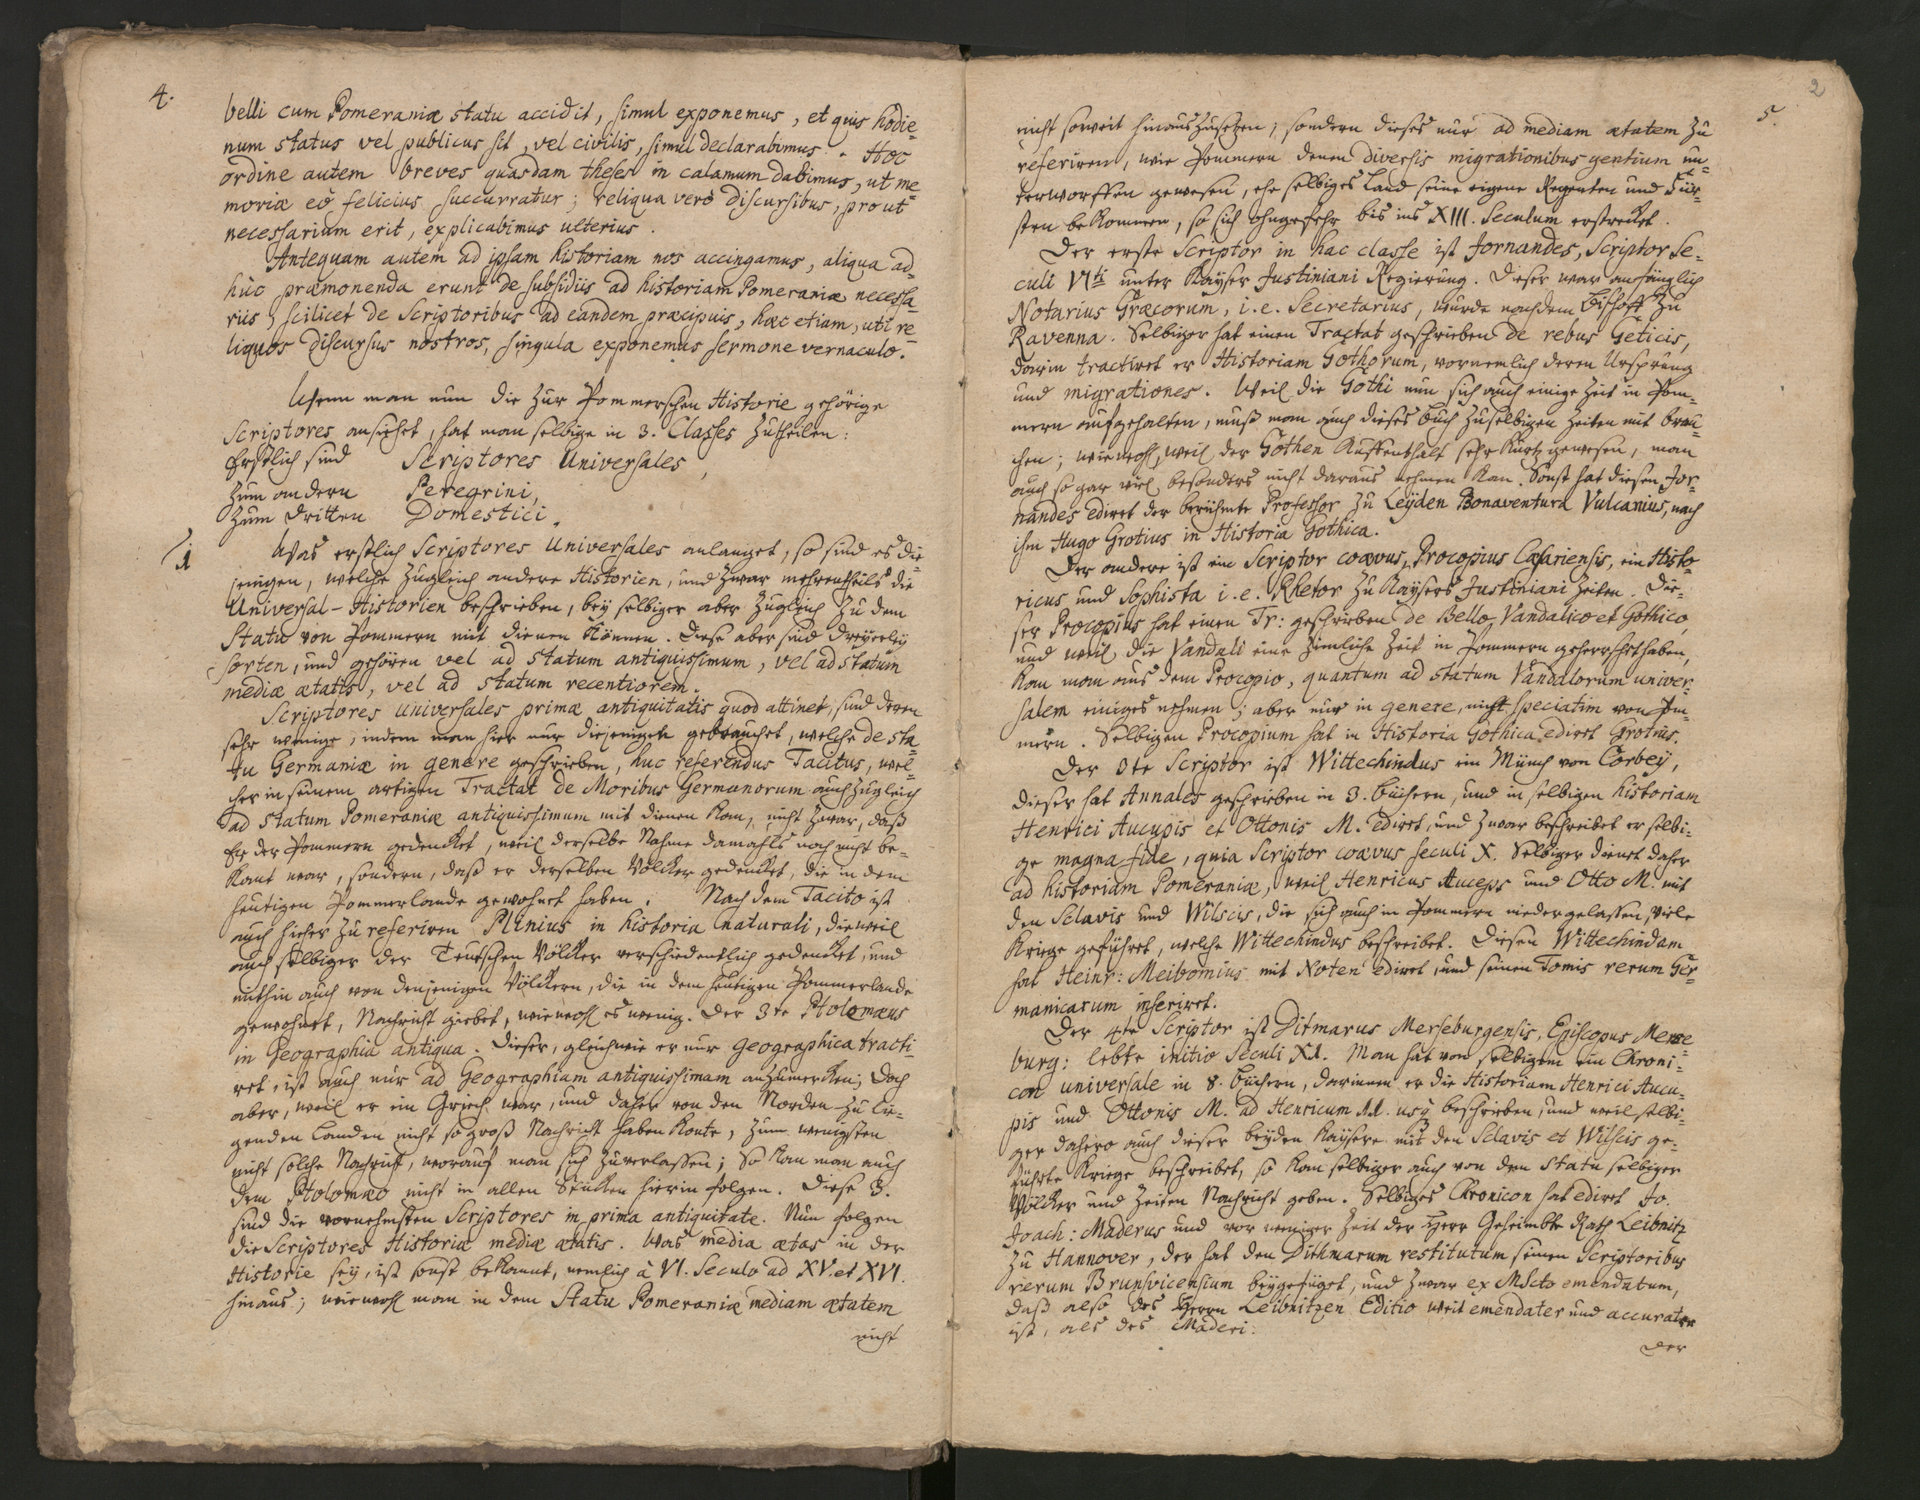 4.
belli cum Pomeraniæ statu accidit, simul exponemus, et quis hodie-
num status vel publicus sit, vel civilis, simul declarabimus. Hoc
ordine autem breves quasdam theses in calamum dabimus, ut me-
moriæ eò felicius succurratur; reliqua verò discursibus, prout
necessarium erit, explicabimus ulterius.
Antequam autem ad ipsam historiam nos accingamus, aliqua ad-
huc præmonenda erunt de subsidiis ad historiam Pomeraniæ necessa-
riis, scilicet de Scriptoribus ad eandem præcipuis, hæc etiam, uti re-
liquos discursus nostros, singula exponemus sermone vernaculo.
Wenn man nun die zur Pommerschen Historie gehörige
Scriptores ansiehet, hat man selbige in 3. Classes zutheilen:
Erstlich sind Scriptores Universales,
zum andern Peregrini,
zum dritten Domestici.
1
Was erstlich Scriptores Universales anlanget, so sind es die-
jenigen, welche zugleich andere Historien, und zwar mehrentheils die
Universal-Historien beschrieben, bey selbiger aber zugleich zu dem
Statu von Pommern mit dienen können. Diese aber sind dreyerley
sorten, und gehören vel ad statum antiquissimum, vel ad statum
mediæ ætatis, vel ad statum recentiorem.
Scriptores universales primæ antiquitatis quod attinet, sind deren
sehr wenige, indem man hier nur diejenigen gebrauchet, welche de sta-
tu Germaniæ in genere geschrieben, huc referendus Tacitus, wel-
cher in seinem artigen Tractat de Moribus Germanorum auch zugleich
ad statum Pomeraniæ antiquissimum mit dienen kan, nicht zwar, daß
Er der Pommern gedencket, weil derselbe Nahme damahls noch nicht be-
kant war, sondern, daß er derselben Völcker gedencket, die in dem
heutigen Pommerlande gewohnet haben. Nach dem Tacito ist
auch hieher zu referiren Plinius in historia naturali, dieweil
auch selbiger der Teutschen Völcker verschiedentlich gedencket, und
mithin auch von denjenigen Völckern, die in dem heutigen Pommerlande
gewohnet, Nachricht giebet, wiewohl es wenig. Der 3te Ptolomæus
in Geographia antiqua. Dieser, gleichwie er nur Geographica tracti-
ret, ist auch nur ad Geographiam antiquissimam anzumercken; doch
aber, weil er ein Griech war, und daher von den Norden zu lie-
genden Landen nicht so groß Nachricht haben konte, zum wenigsten
nicht solche Nachricht, worauf man sich zuverlassen; So kan man auch
dem Ptolomæo nicht in allen Stücken hierin folgen. Diese 3.
sind die vornehmsten Scriptores in prima antiquitate. Nun folgen
die Scriptores Historiæ mediæ ætatis. Was media ætas in der
Historie sey, ist sonst bekannt, nemlich à VI. Seculo ad XV. et XVI.
hinaus; wiewohl man in dem Statu Pomeraniæ mediam ætatem
nicht
2
5.
nicht soweit hinauszusetzen; sondern dieses nur ad mediam ætatem zu
referiren, wie Pommern denen diversis migrationibus gentium un-
terworffen gewesen, ehe selbiges Land seine eigene Regenten und Für-
sten bekommen, so sich ohngefehr bis ins XIII. Seculum erstrecket.
Der erste Scriptor in hac classe ist Jornandes, Scriptor Se-
culi VIti unter Kayser Justiniani Regierung. Dieser war anfänglich
Notarius Græcorum, i.e. Secretarius, wurde nachdem Bischoff zu
Ravenna. Selbiger hat einen Tractat geschrieben de rebus Geticis,
darin tractiret er Historiam Gothorum, vornemlich deren Ursprung
und migrationes. Weil die Gothi nun sich auch einige Zeit in Pom-
mern aufgehalten, muß man auch dieses Buch zu selbigen Zeiten mit brau-
chen; wiewohl, weil der Gothen Auffenthalt sehr kurtz gewesen, man
auch so gar viel besonders nicht daraus nehmen kan. Sonst hat diesen Jor-
nandes ediret der berühmte Professor zu Leyden Bonaventura Vulcanius, nach
ihm Hugo Grotius in Historia Gothica.
Der andere ist ein Scriptor coævus, Procopius Cæsariensis, ein Histo-
ricus und Sophista i.e. Rhetor zu Kaysers Justiniani Zeiten. Die-
ser Procopius hat einen Tr: geschrieben de Bello Vandalico et Gothico,
und weil die Vandali eine ziemliche Zeit in Pommern geherrschet haben,
kan man aus dem Procopio, quantum ad statum Vandalorum univer-
salem einiges nehmen; aber nur in genere, nicht speciatim von Pom-
mern. Selbigen Procopium hat in Historia Gothica ediret Grotius.
Der 3te Scriptor ist Wittechindus ein Münch von Corbey,
dieser hat Annales geschrieben in 3. Büchern, und in selbigen historiam
Henrici Aucupis et Ottonis M. ediret, und zwar beschreibet er selbi-
ge magna fide, quia Scriptor coævus seculi X. Selbiger dienet daher
ad historiam Pomeraniæ, weil Henricus Auceps und Otto M. mit
den Sclavis und Wilscis, die sich auch in Pommern niedergelassen, viele
Kriege geführet, welche Wittechindus beschreibet. Diesen Wittechindam
hat Heinr: Meibomius mit Noten ediret, und seinen Tomis rerum Ger-
manicarum inseriret.
Der 4te Scriptor ist Ditmarus Merseburgensis, Episcopus Merse-
burg: lebte initio Seculi XI. Man hat von selbigem ein Chroni-
con universale in 8. Büchern, darinnen er die Historiam Henrici Aucu-
pis und Ottonis M. ad Henricum II. usq beschrieben, und weil selbi-
ger dahero auch dieser beyden Kaysere mit den Sclavis et Wilscis ge-
führte Kriege beschreibet, so kan selbiger auch von dem Statu selbiger
Völcker und Zeiten Nachricht geben. Selbiges Chronicon hat ediret Jo.
Joach: Maderus und vor weniger Zeit der Herr Geheimbte Rath Leibnitz
zu Hannover, der hat den Dithmarum restitutum seinen Scriptoribus
rerum Brunsvicensium beygefüget, und zwar ex MScto emendatum,
daß also des Herrn Leibnitzen Editio weit emendater und accurater
ist, als des Maderi.
der